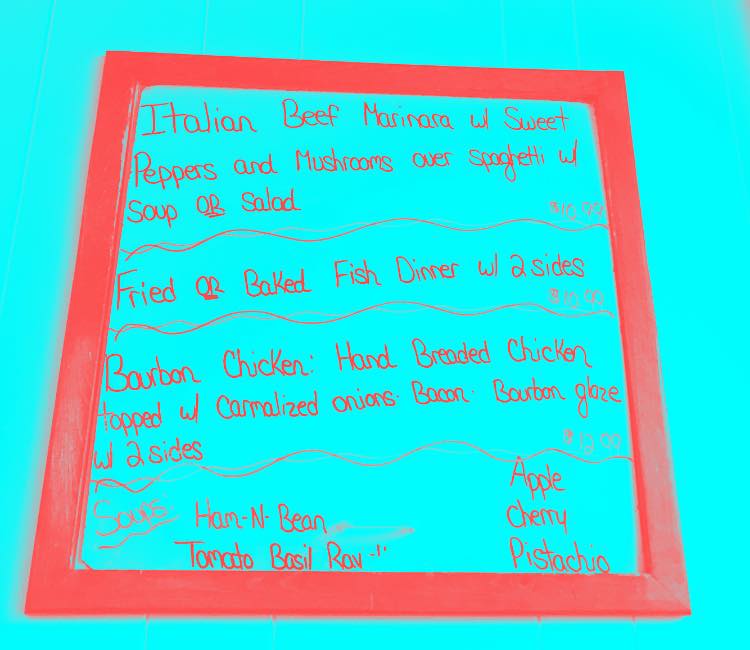 Italian Beef Marinara w/ Sweet
Peppers and Mushrooms over spaghetti w/
Soup OR Salad
$10.99
Fried OR Baked Fish Dinner w/ 2 sides
$10.99
Bourbon Chicken: Hand Breaded Chicken
topped w/ Carmalized onions. Bacon. Bourbon glaze
w/ 2 sides
$12.99
Soups: Ham-N-Bean
Tomato Basil Rav
Apple
Cherry
Pistachio